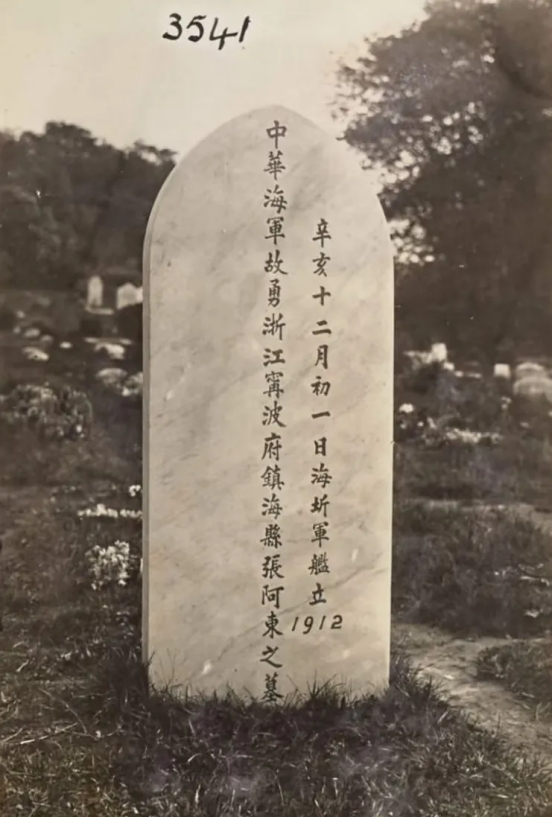 3541
辛亥十二月初一日海圻軍艦立
1912
中華海軍故勇浙江寗波府鎮海縣張阿東之墓